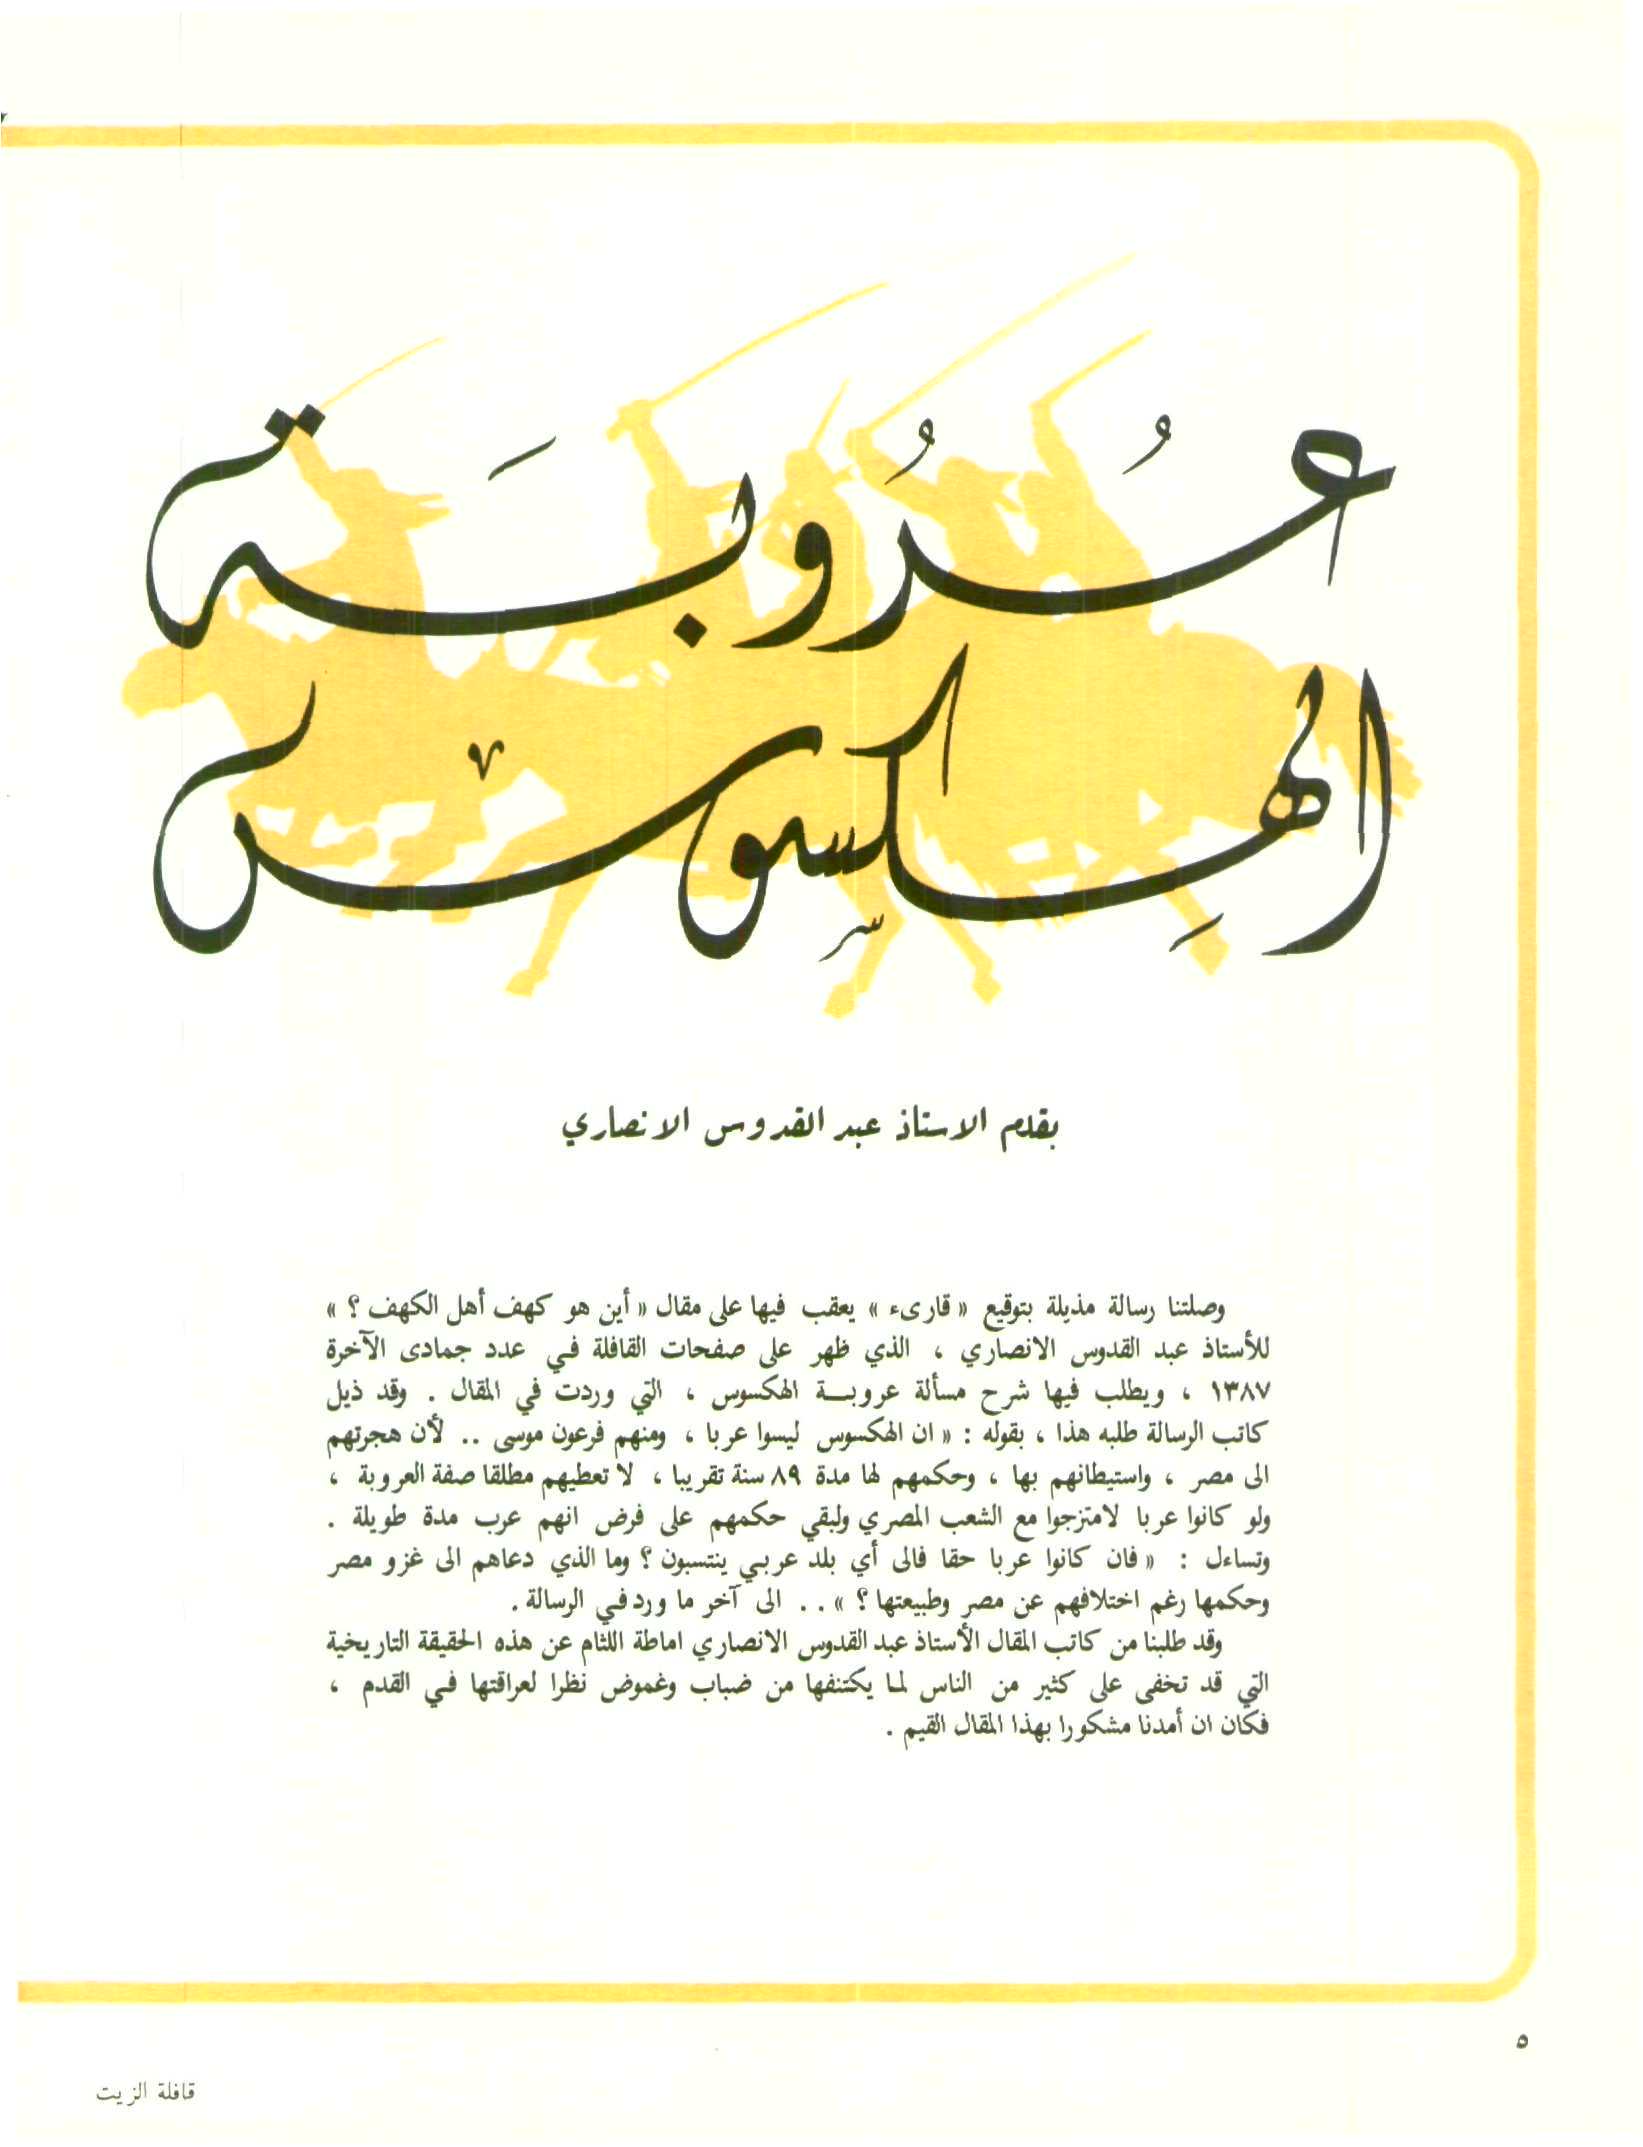 عُرُوبَة
الهِكسوس
بقلم الاستاذ عبد القدوس الانصاري
وصلتنا رسالة مذيلة بتوقيع « قارىء » يعقب فيها على مقال « أين هو كهف أهل الكهف ؟ »
للأستاذ عبد القدوس الانصاري ، الذي ظهر على صفحات القافلة في عدد جمادى الآخرة
١٣٨٧ ، ويطلب فيها شرح مسألة عروبة الهكسوس ، التي وردت في المقال . وقد ذيل
كاتب الرسالة طلبه هذا ، بقوله : « ان الهكسوس ليسوا عربا ، ومنهم فرعون موسى .. لأن هجرتهم
الى مصر ، واستيطانهم بها ، وحكمهم لها مدة ٨٩ سنة تقريبا ، لا تعطيهم مطلقا صفة العروبة ،
ولو كانوا عربا لامتزجوا مع الشعب المصري ولبقي حكمهم على فرض انهم عرب مدة طويلة .
وتساءل : « فان كانوا عربا حقا فالى أي بلد عربي ينتسبون ؟ وما الذي دعاهم الى غزو مصر
وحكمها رغم اختلافهم عن مصر وطبيعتها ؟ » .. الى آخر ما ورد في الرسالة .
وقد طلبنا من كاتب المقال الأستاذ عبد القدوس الانصاري اماطة اللثام عن هذه الحقيقة التاريخية
التي قد تخفى على كثير من الناس لما يكتنفها من ضباب وغموض نظرا لعراقتها في القدم ،
فكان ان أمدنا مشكورا بهذا المقال القيم .
٥
قافلة الزيت